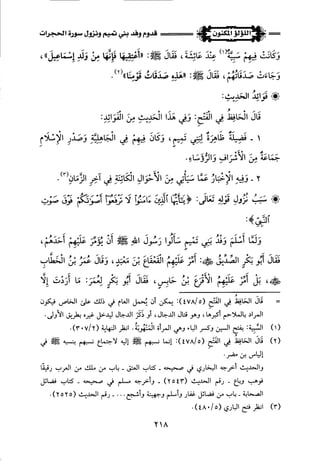 اللؤلؤ المكنون
قدوم وفد بني تميم ونزول سورة الحجرات
وَكَانَتْ فِيهِمْ سَبِيَّةٌ(١) عِنْدَ عَائِشَةَ، فَقَالَ ﷺ: «أَعْتِقِيهَا فَإِنَّهَا مِنْ وَلَدِ إِسْمَاعِيلَ»،
وَجَاءَتْ صَدَقَاتُهُمْ، فَقَالَ ﷺ: «هَذِهِ صَدَقَاتُ قَوْمِنَا»(٢).
فَوَائِدُ الحَدِيثِ:
قَالَ الحَافِظُ فِي الفَتْحِ: وَفِي هَذَا الحَدِيثِ مِنَ الفَوَائِدِ:
١ - فَضِيلَةٌ ظَاهِرَةٌ لِبَنِي تَمِيمٍ، وَكَانَ فِيهِمْ فِي الجَاهِلِيَّةِ وَصَدْرِ الإِسْلَامِ
جَمَاعَةٌ مِنَ الأَشْرَافِ وَالرُّؤَسَاءِ.
٢ - وَفِيهِ الإِخْبَارُ عَمَّا سَيَأْتِي مِنَ الأَحْوَالِ الكَائِنَةِ فِي آخِرِ الزَّمَانِ(٣).
سَبَبُ نُزُولِ قَوْلِهِ تَعَالَى: ﴿يَتَأَيُّهَا الَّذِينَ ءَامَنُوا لَا تَرْفَعُوا أَصْوَتَكُمْ فَوْقَ صَوْتِ
النَّبِيِّ﴾:
وَلَمَّا أَسْلَمَ وَفْدُ بَنِي تَمِيمٍ سَأَلُوا رَسُولَ اللهِ ﷺ أَنْ يُؤَمِّرَ عَلَيْهِمْ أَحَدَهُمْ،
فَقَالَ أَبُو بَكْرٍ الصِّدِّيقُ: أَمِّرْ عَلَيْهِمُ القَعْقَاعَ بْنَ مَعْبَدٍ، وَقَالَ عُمَرُ بْنُ الخَطَّابِ
بَلْ أَمِّرْ عَلَيْهِمُ الأَقْرَعَ بْنَ حَابِسٍ، فَقَالَ أَبُو بَكْرٍ لِعُمَرَ: مَا أَرَدْتَ إِلَّا
= قال الحافظ في الفتح (٤٧٨/٥): يمكن أن يُحمل العام في ذلك على الخاص، فيكون
المراد بالملاحم أكبرها، وهو قتال الدجال، أو ذكر الدجال ليدخل غيره بطريق الأولى.
(١) السَّبِيَّة: بفتح السين وكسر الباء وهي المرأة المنهُوبة. انظر النهاية (٣٠٧/٢).
(٢) قال الحافظ في الفتح (٤٧٨/٥): إنما نسبهم ﷺ إليه لاجتماع نسبهم بنسبه ﷺ في
إلياس بن مضر.
والحديث أخرجه البخاري في صحيحه - كتاب العتق - باب من ملك من العرب رقيقًا
فوهب وباع - رقم الحديث (٢٥٤٣) - وأخرجه مسلم في صحيحه - كتاب فضائل
الصحابة - باب من فضائل غفار وأسلم وجهينة وأشجع... - رقم الحديث (٢٥٢٥).
(٣) انظر فتح الباري (٤٨٠/٥).
٢١٨